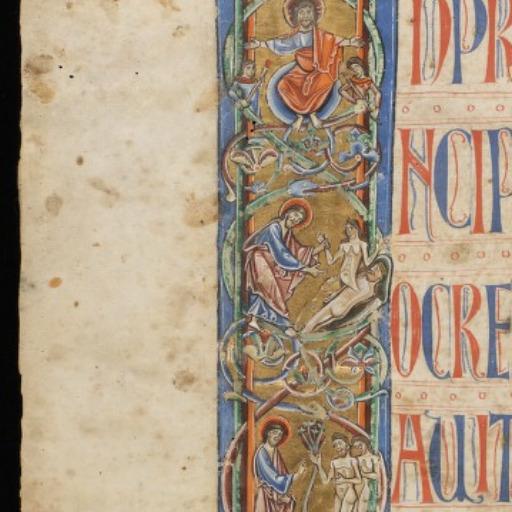 NPR
NCIP
OCRE
AUIT